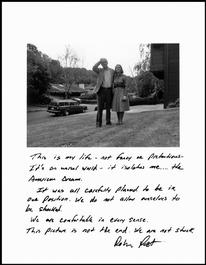 This is my life - not fancy or pretentious -
It's an unreal world - it isolates me.... the
American Dream.
It was all carefully planned to be in
our position. We do not allow ourselves to
be shocked.
We are comfortable in every sense.
This picture is not the end. We are not stuck